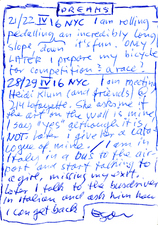 DREAMS
21/22 IV 16 NYC I am rolling-
pedalling an incredibly long
slope down it's fun. Only
LATER I prepare my bicycle
for competition: a race!
28/29 IV 16 NYC I am meeting
Heidi Klum (and friends) @
214 Lafayette. She asks me if
the art on the wall is mine,
I say "yes" although it is
NOT. Later I give her a cata-
logue of mine. / I am in
Italy in a bus to the air-
port and start talking to
a girl, missing my exit.
Later I talk to the bus driver
in Italian and ask him how
I can get back